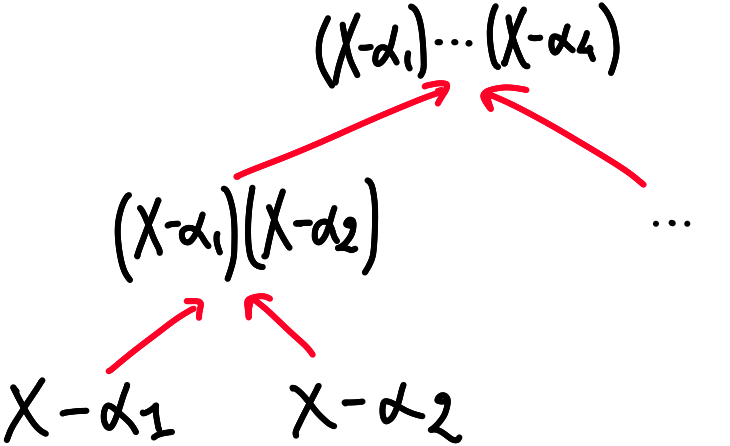 (X-α₁)···(X-α₄)
(X-α₁)(X-α₂)
...
X-α1 X-α2